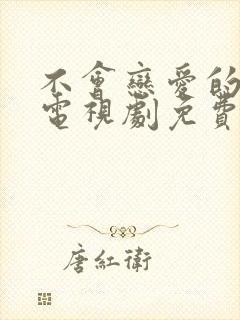 不會戀愛的
電視劇免費
唐紅衛